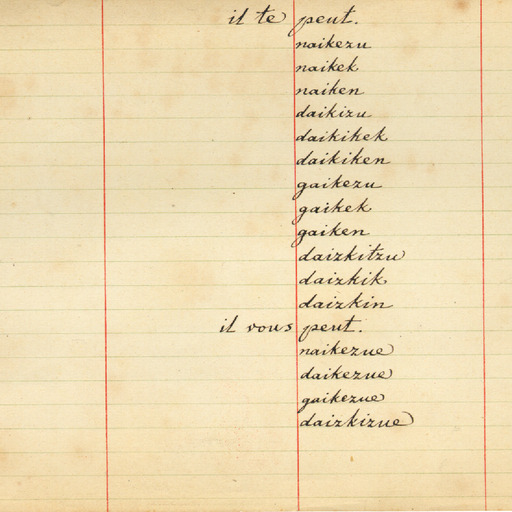 il te peut.
naikezu
naikek
naiken
daikizu
daikikek
daikiken
gaikezu
gaikek
gaiken
daizkitzu
daizkik
daizkin
il vous peut.
naikezue
daikezue
gaikezue
daizkizue